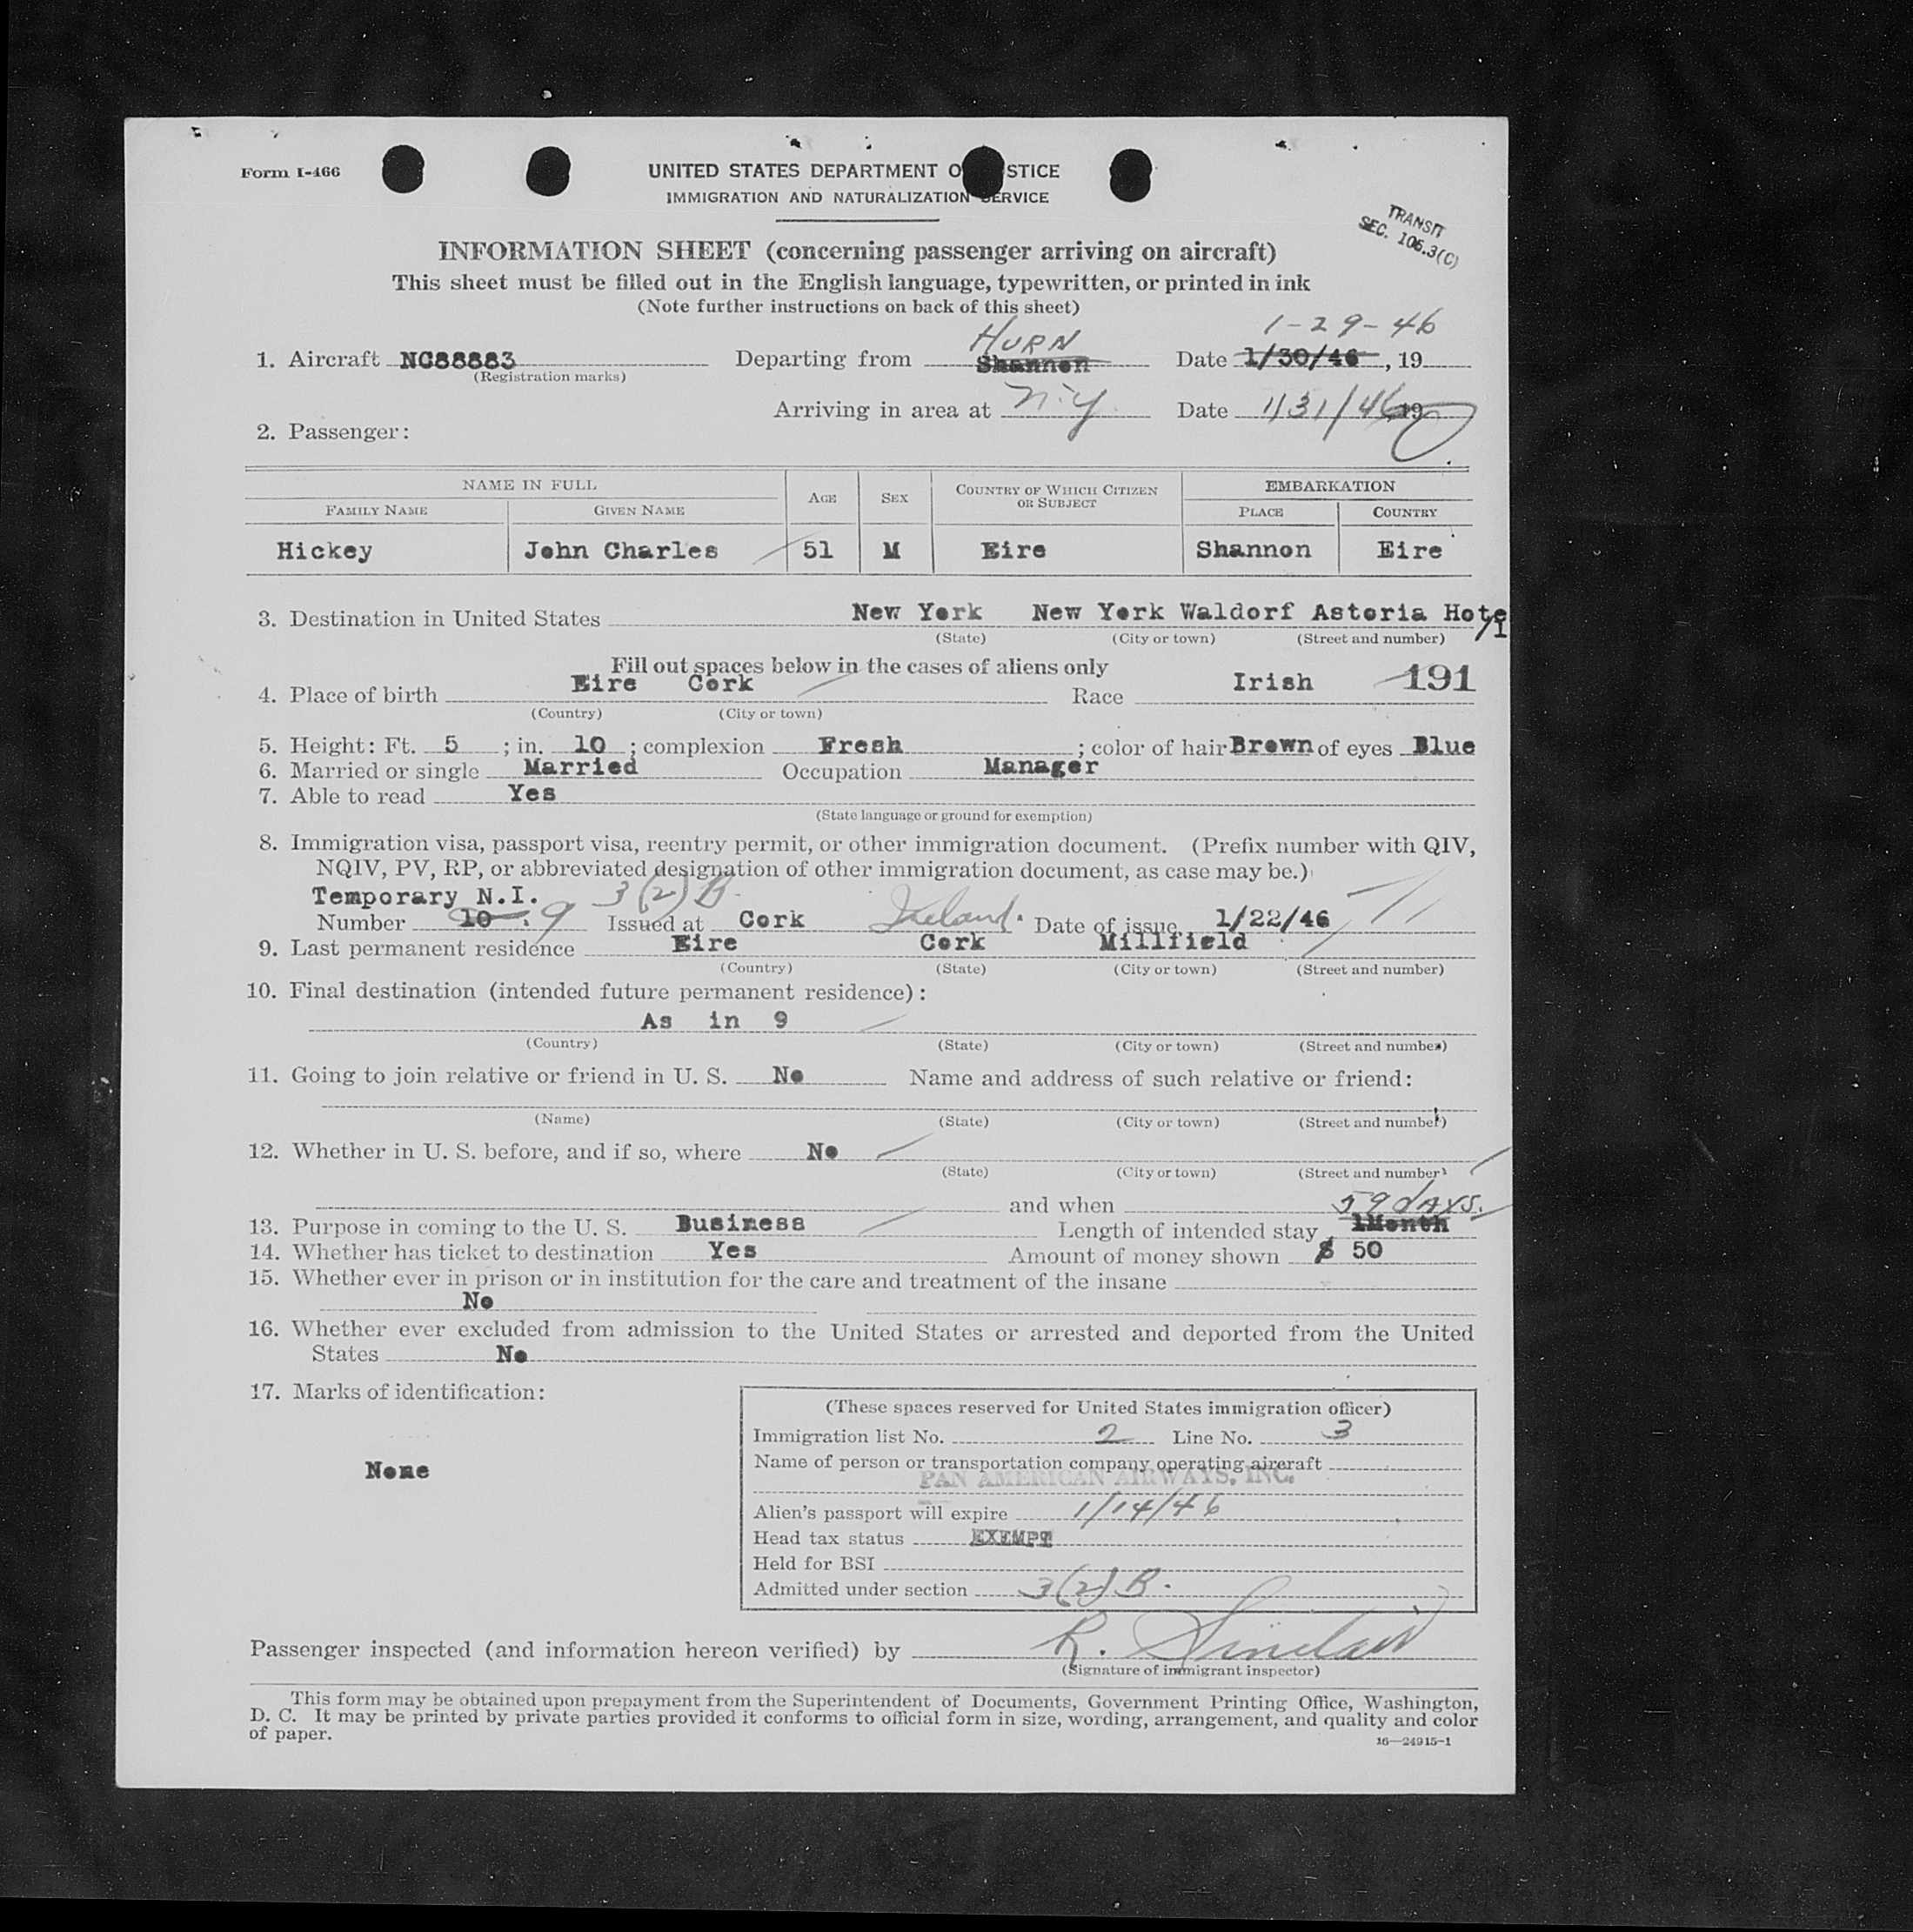 Form I-466
UNITED STATES DEPARTMENT O STICE
IMMIGRATION AND NATURALIZATION SERVICE
TRANSIT
SEC. 105.3(C)
INFORMATION SHEET (concerning passenger arriving on aircraft)
This sheet must be filled out in the English language, typewritten, or printed in ink
(Note further instructions on back of this sheet)
HURN 1-29-46
1. Aircraft NC88883 Departing from Shannon Date 1/30/46, 19
(Registration marks)
Arriving in area at N.Y. Date 1/31/46 19
2. Passenger:
NAME IN FULL AGE SEX COUNTRY OF WHICH CITIZEN OR SUBJECT EMBARKATION
FAMILY NAME GIVEN NAME PLACE COUNTRY
Hickey John Charles 51 M Eire Shannon Eire
3. Destination in United States New York New York Waldorf Astoria Hotel
(State) (City or town) (Street and number)
Fill out spaces below in the cases of aliens only
4. Place of birth Eire Cork Race Irish 191
(Country) (City or town)
5. Height: Ft. 5 ; in. 10 ; complexion Fresh ; color of hair Brown of eyes Blue
6. Married or single Married Occupation Manager
7. Able to read Yes
(State language or ground for exemption)
8. Immigration visa, passport visa, reentry permit, or other immigration document. (Prefix number with QIV,
NQIV, PV, RP, or abbreviated designation of other immigration document, as case may be.)
Temporary N.I. 3(2)B.
Number 10 9 Issued at Cork Ireland. Date of issue 1/22/46
9. Last permanent residence Eire Cork Millfield
(Country) (State) (City or town) (Street and number)
10. Final destination (intended future permanent residence):
As in 9
(Country) (State) (City or town) (Street and number)
11. Going to join relative or friend in U. S. No Name and address of such relative or friend:
(Name) (State) (City or town) (Street and number)
12. Whether in U. S. before, and if so, where No
(State) (City or town) (Street and number)
and when 59 days.
13. Purpose in coming to the U. S. Business Length of intended stay 1Month
14. Whether has ticket to destination Yes Amount of money shown $ 50
15. Whether ever in prison or in institution for the care and treatment of the insane
No
16. Whether ever excluded from admission to the United States or arrested and deported from the United
States No
17. Marks of identification:
None
(These spaces reserved for United States immigration officer)
Immigration list No. 2 Line No. 3
Name of person or transportation company operating aircraft
PAN AMERICAN AIRWAYS, INC.
Alien's passport will expire 1/14/46
Head tax status EXEMPT
Held for BSI
Admitted under section 3(2) B.
Passenger inspected (and information hereon verified) by R. Sinclair
(Signature of immigrant inspector)
This form may be obtained upon prepayment from the Superintendent of Documents, Government Printing Office, Washington,
D. C. It may be printed by private parties provided it conforms to official form in size, wording, arrangement, and quality and color
of paper.
16—24915-1